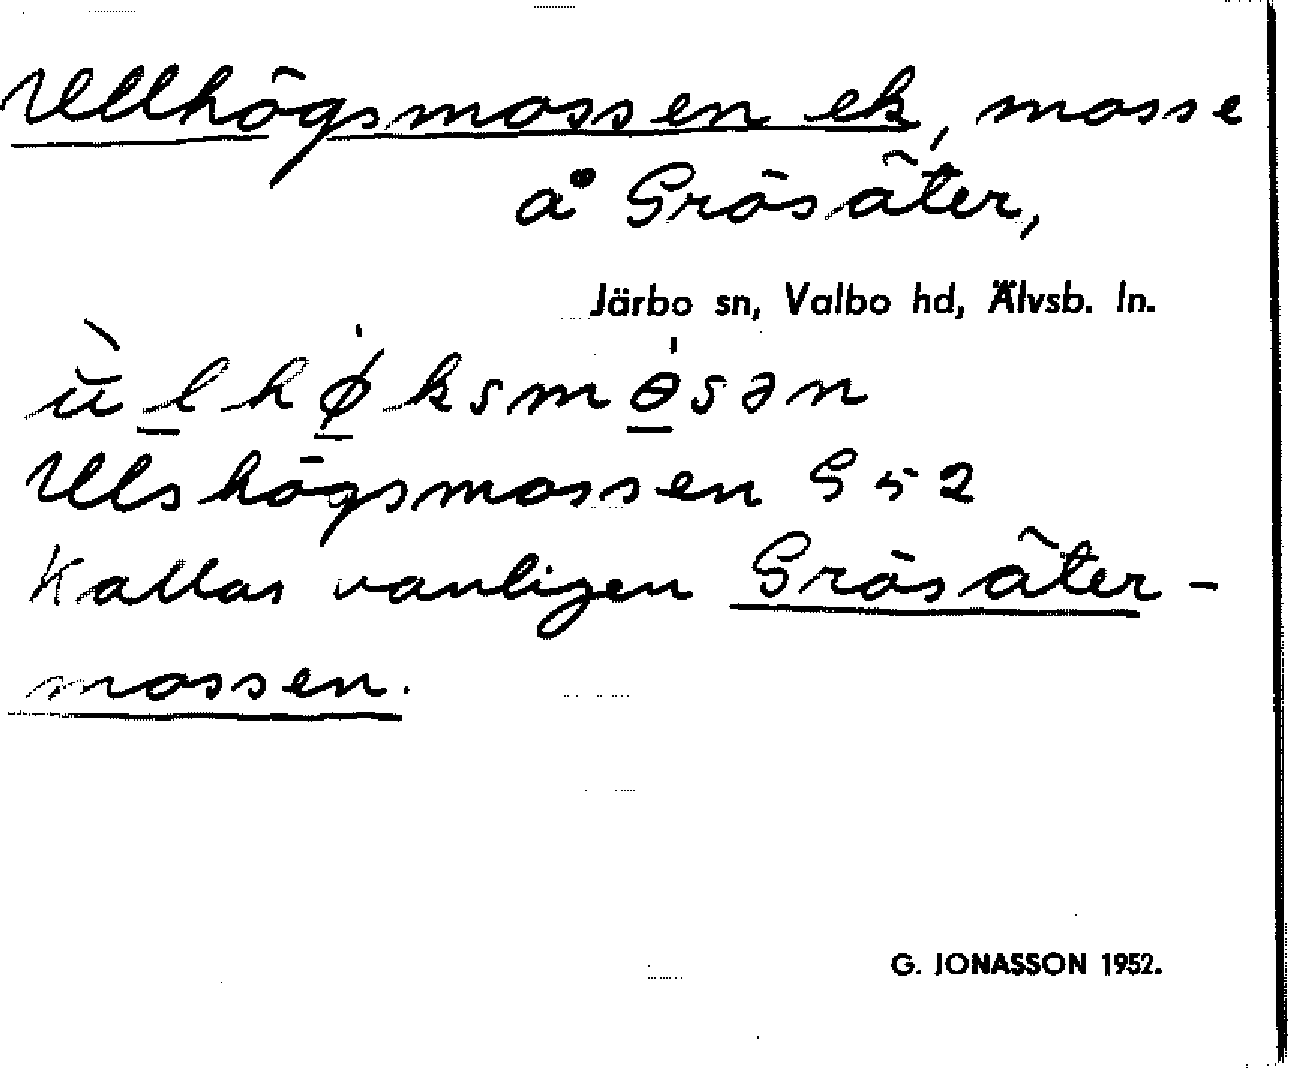 Ullhögsmossen ek, mosse
å Gräsäter,
Järbo sn, Valbo hd, Älvsb. ln.
ùlhøksmɵsən
Ulshögsmossen G 52
Kallas vanligen Gräsäter-
mossen.
G. JONASSON 1952.